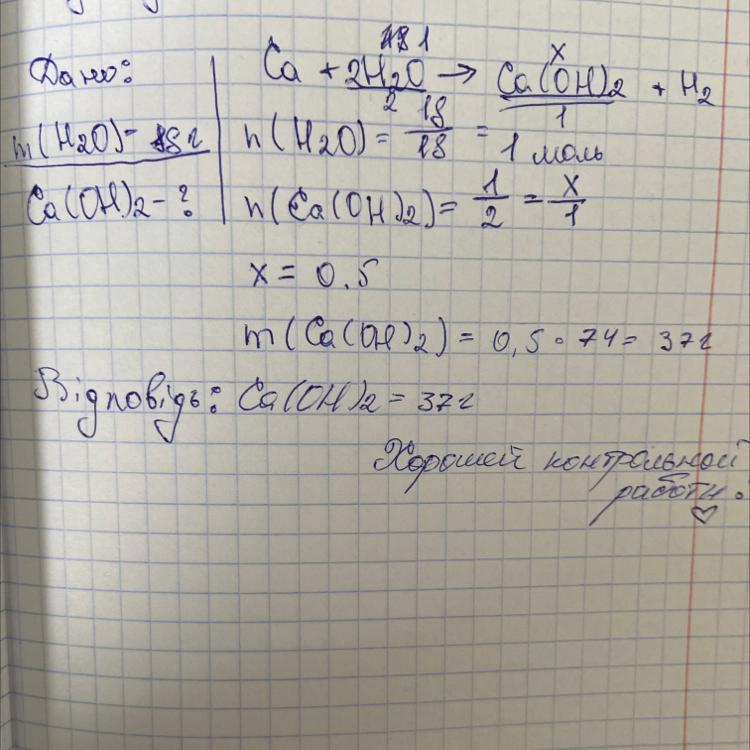 Дано:
m(H2O)- 18г
Ca(OH)2-?
1
x
Ca + 2H2O → Ca(OH)2 + H2
2
1
n(H2O)= 18/18 = 1 моль
n(Ca(OH)2)= 1/2 = x/1
x = 0.5
m(Ca(OH)2) = 0,5 · 74 = 37г
Відповідь: Ca(OH)2 = 37г
Хорошей контрольной
работы.
♡